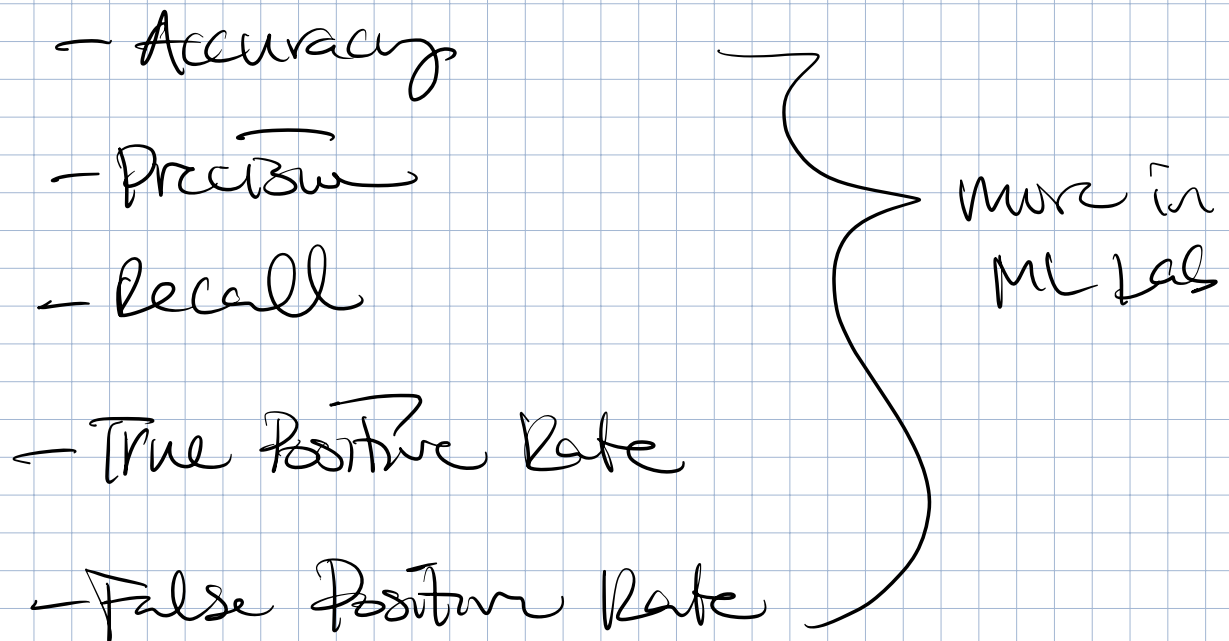 - Accuracy
- Precision
- Recall
- True Positive Rate
- False Positive Rate
more in
ML Lab